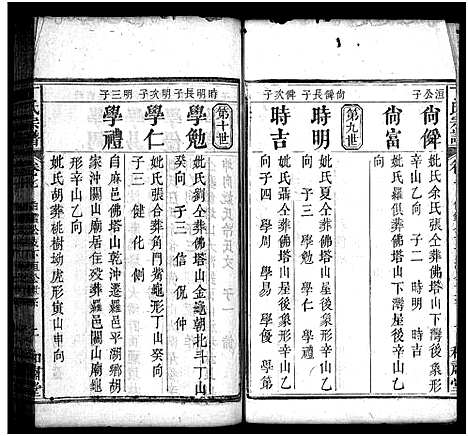 洹公子
尙僢
妣氏余氏張仝葬佛塔山下灣屋後象
形辛山乙向 子二 時明 時吉
尙富
妣氏羅俱葬佛塔山下灣屋後象形辛
山乙向
第九世
尙僢長子
時明
妣氏夏仝葬佛塔山屋後象形辛山乙
向 子三 學勉 學仁 學禮
尙僢次子
時吉
妣氏張仝葬佛塔山屋後象形辛山乙
向 子四 學周 學易 學優 學第
第十世
時明長子
學勉
妣氏劉仝葬佛塔山金龜朝北斗丁山
癸向 子三 信 侃 伸
明次子
學仁
妣氏張合葬角門觜龜形丁山癸向
子三 健 化 側
明三子
學禮
自麻邑佛塔山乾沖遷羅邑平湖鄉胡
家沖關山廟居住歿葬羅邑關山廟後
龜形辛山乙向
妣氏胡葬桃樹坳虎形寅山申向